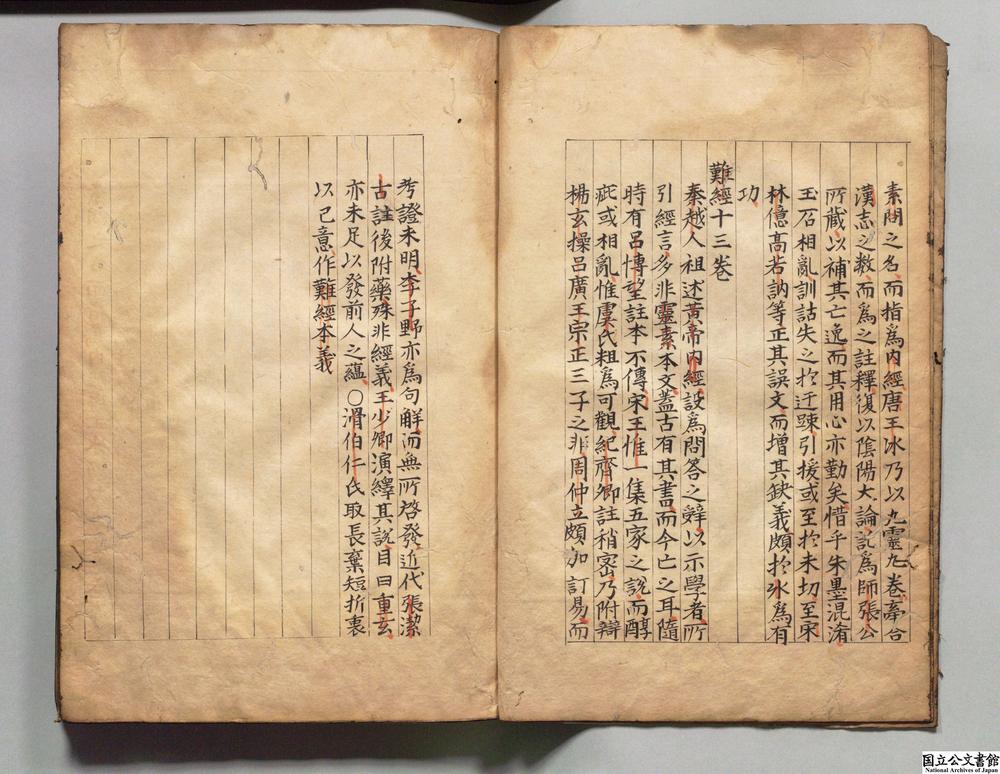 素問之名而指爲内經唐王冰乃以九靈九卷牽合
漢志之數而爲之註釋復以陰陽大論託爲師張公
所藏以補其亡逸而其用心亦勤矣惜乎朱墨混淆
玉石相亂訓詁失之於迂踈引援或至於未切至宋
林億高若訥等正其誤文而增其缺義頗於氷爲有
功
難經十三卷
秦越人祖述黄帝内經設爲問答之辭以示學者所
引經言多非靈素本文盖古有其書而今亡之耳隨
時有吕博望註本不傳宋王惟一集五家之說而醇
疵或相亂惟虞氏粗爲可觀紀齊卿註稍密乃附辯
楊玄操吕廣王宗正三子之非周仲立頗加訂易而
考證未明李子野亦爲句解而無所啓發近代張潔
古註後附藥殊非經義王少卿演繹其說目曰重玄
亦未足以發前人之藴○滑伯仁氏取長棄短折衷
以己意作難經本義
国立公文書館
National Archives of Japan